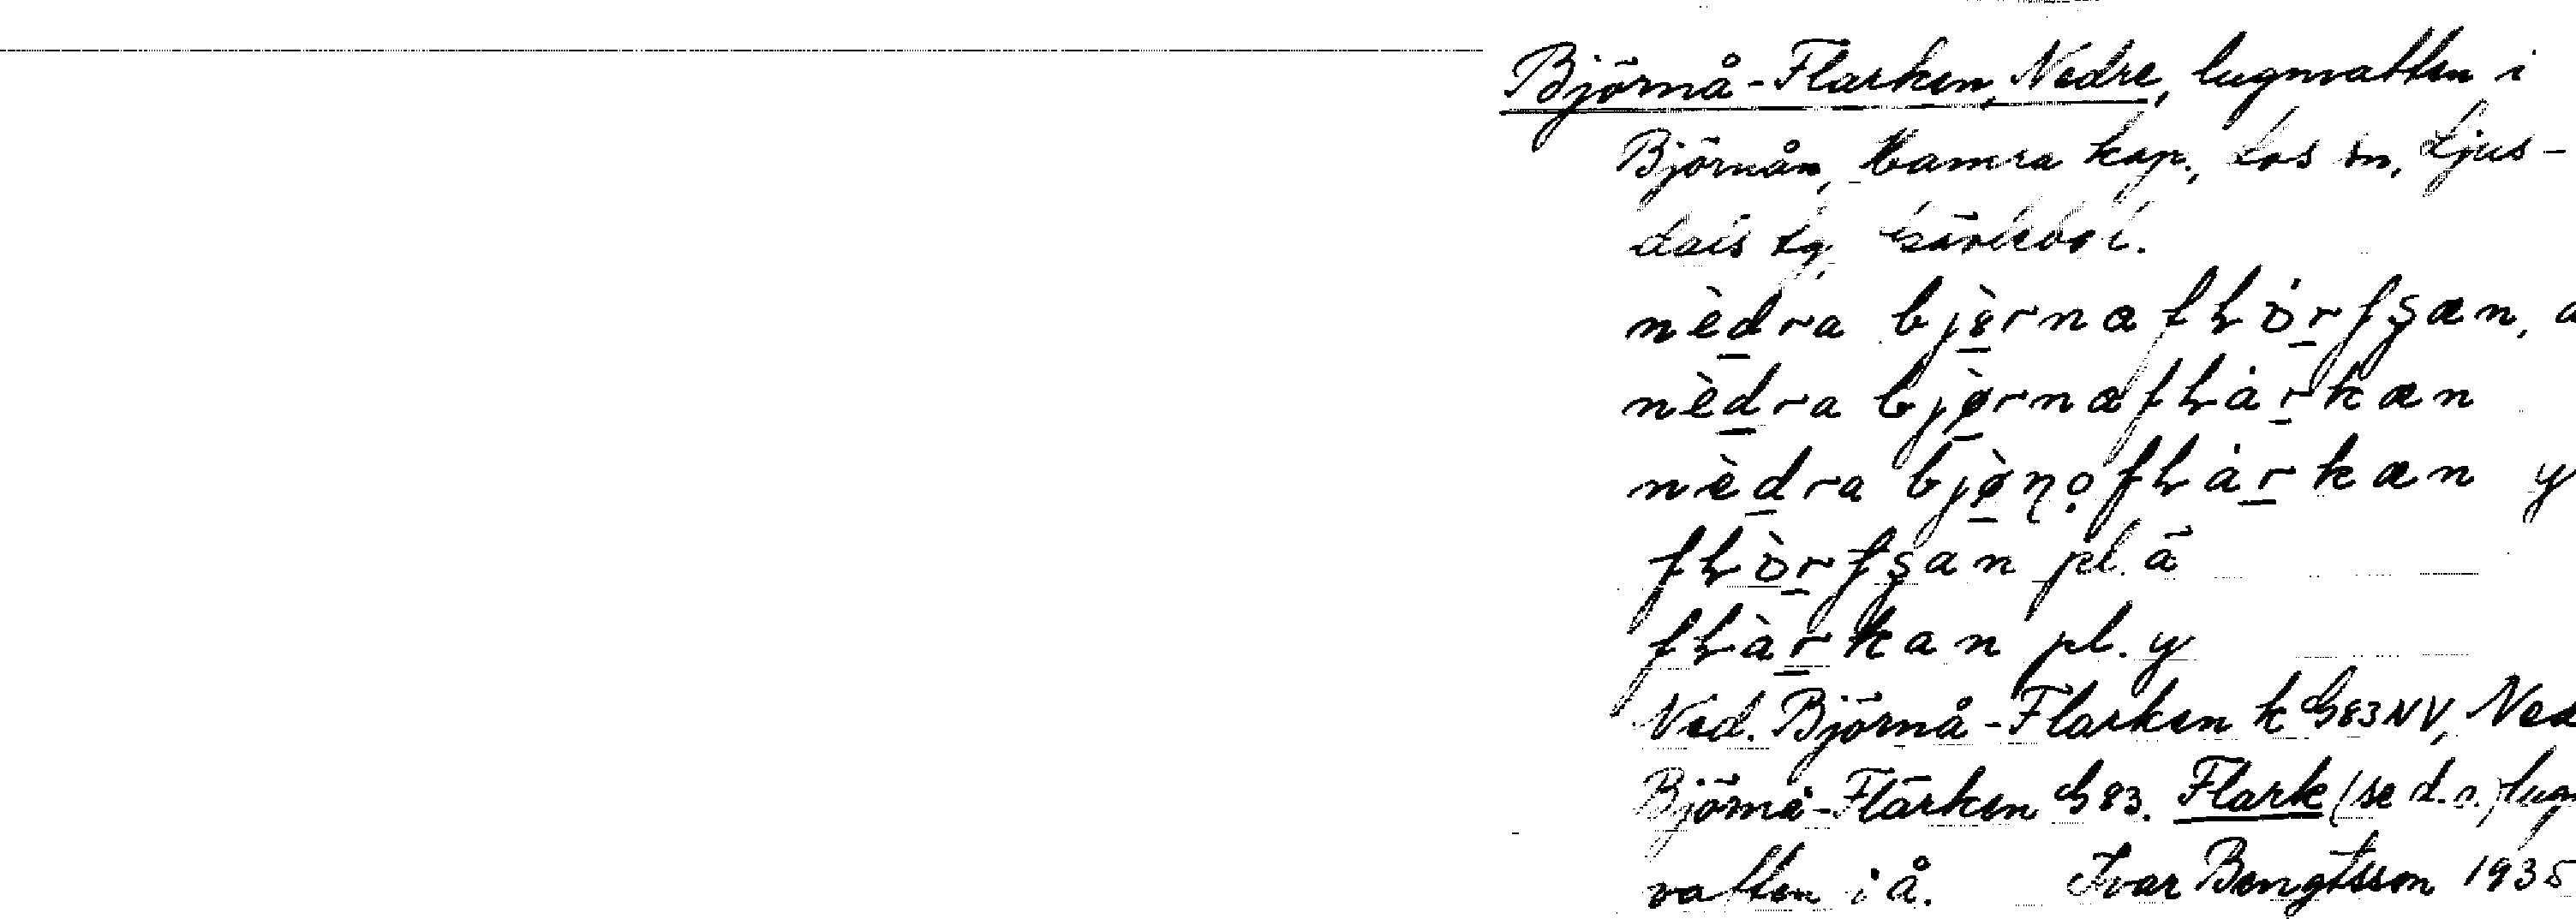 Björnå-Flarken, Nedre, lugnvatten i
Björnån, Hamra kap., Los sn, Ljus-
dals tg, Gävlebol.
nèdra bjèrnaflȯrfşæn, a
nèdra bjørnæflȧrkæn
nèdra bjøṇọflȧrkæn y
flòrfşan pl. ä
flàrkan pl. y
Ned. Björnå-Flarken k G83NV, Ned
Björnå-Flarken G83. Flark (se d.o.) lug
vatten i å. Ivar Bengtsson 1935